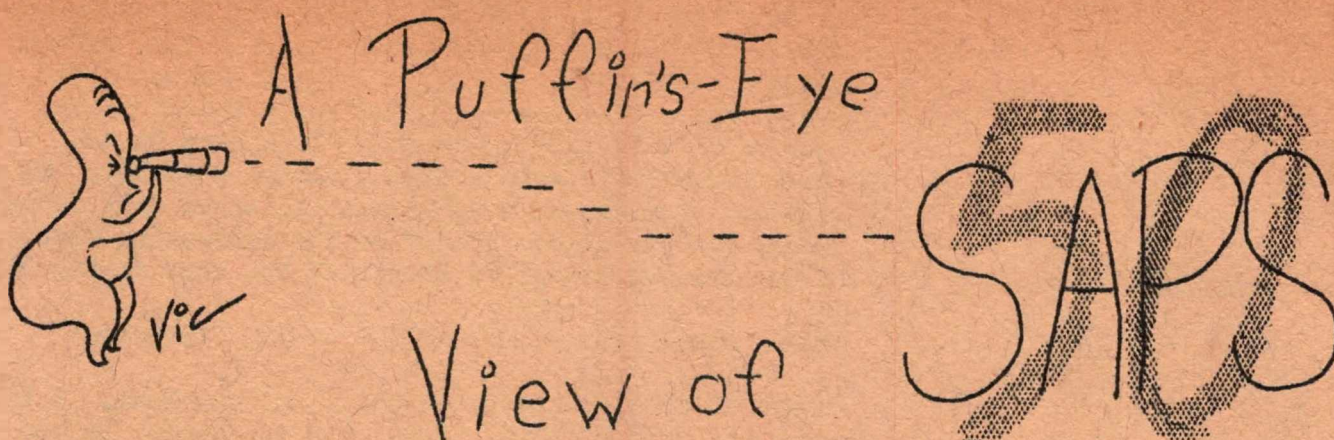 A Puffin's-Eye
View of
SAPS
50
Vic